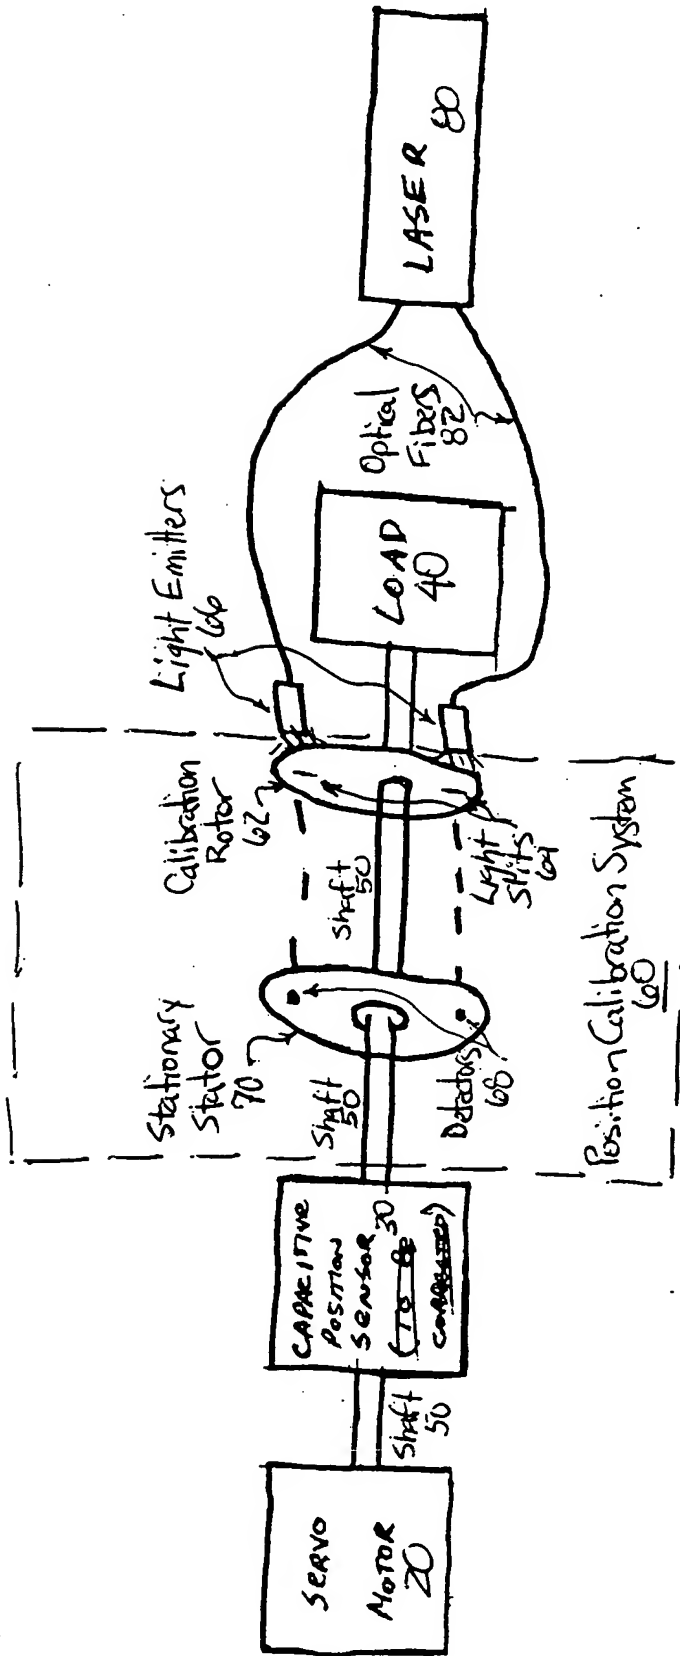 SERVO
MOTOR
20
Shaft
50
CAPACITIVE
POSITION
SENSOR 30
(TO BE
Shaft
50
Stationary
Stator
70
Detectors
68
Shaft
50
Calibration
Rotor
62
Light
Slits
64
Position Calibration System
60
Light Emitters
66
LOAD
40
Optical
Fibers
82
LASER 80